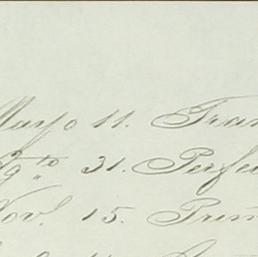 Mayo 11. Fran
Ag.to 31. Perfe
Nov.l 15. Prim